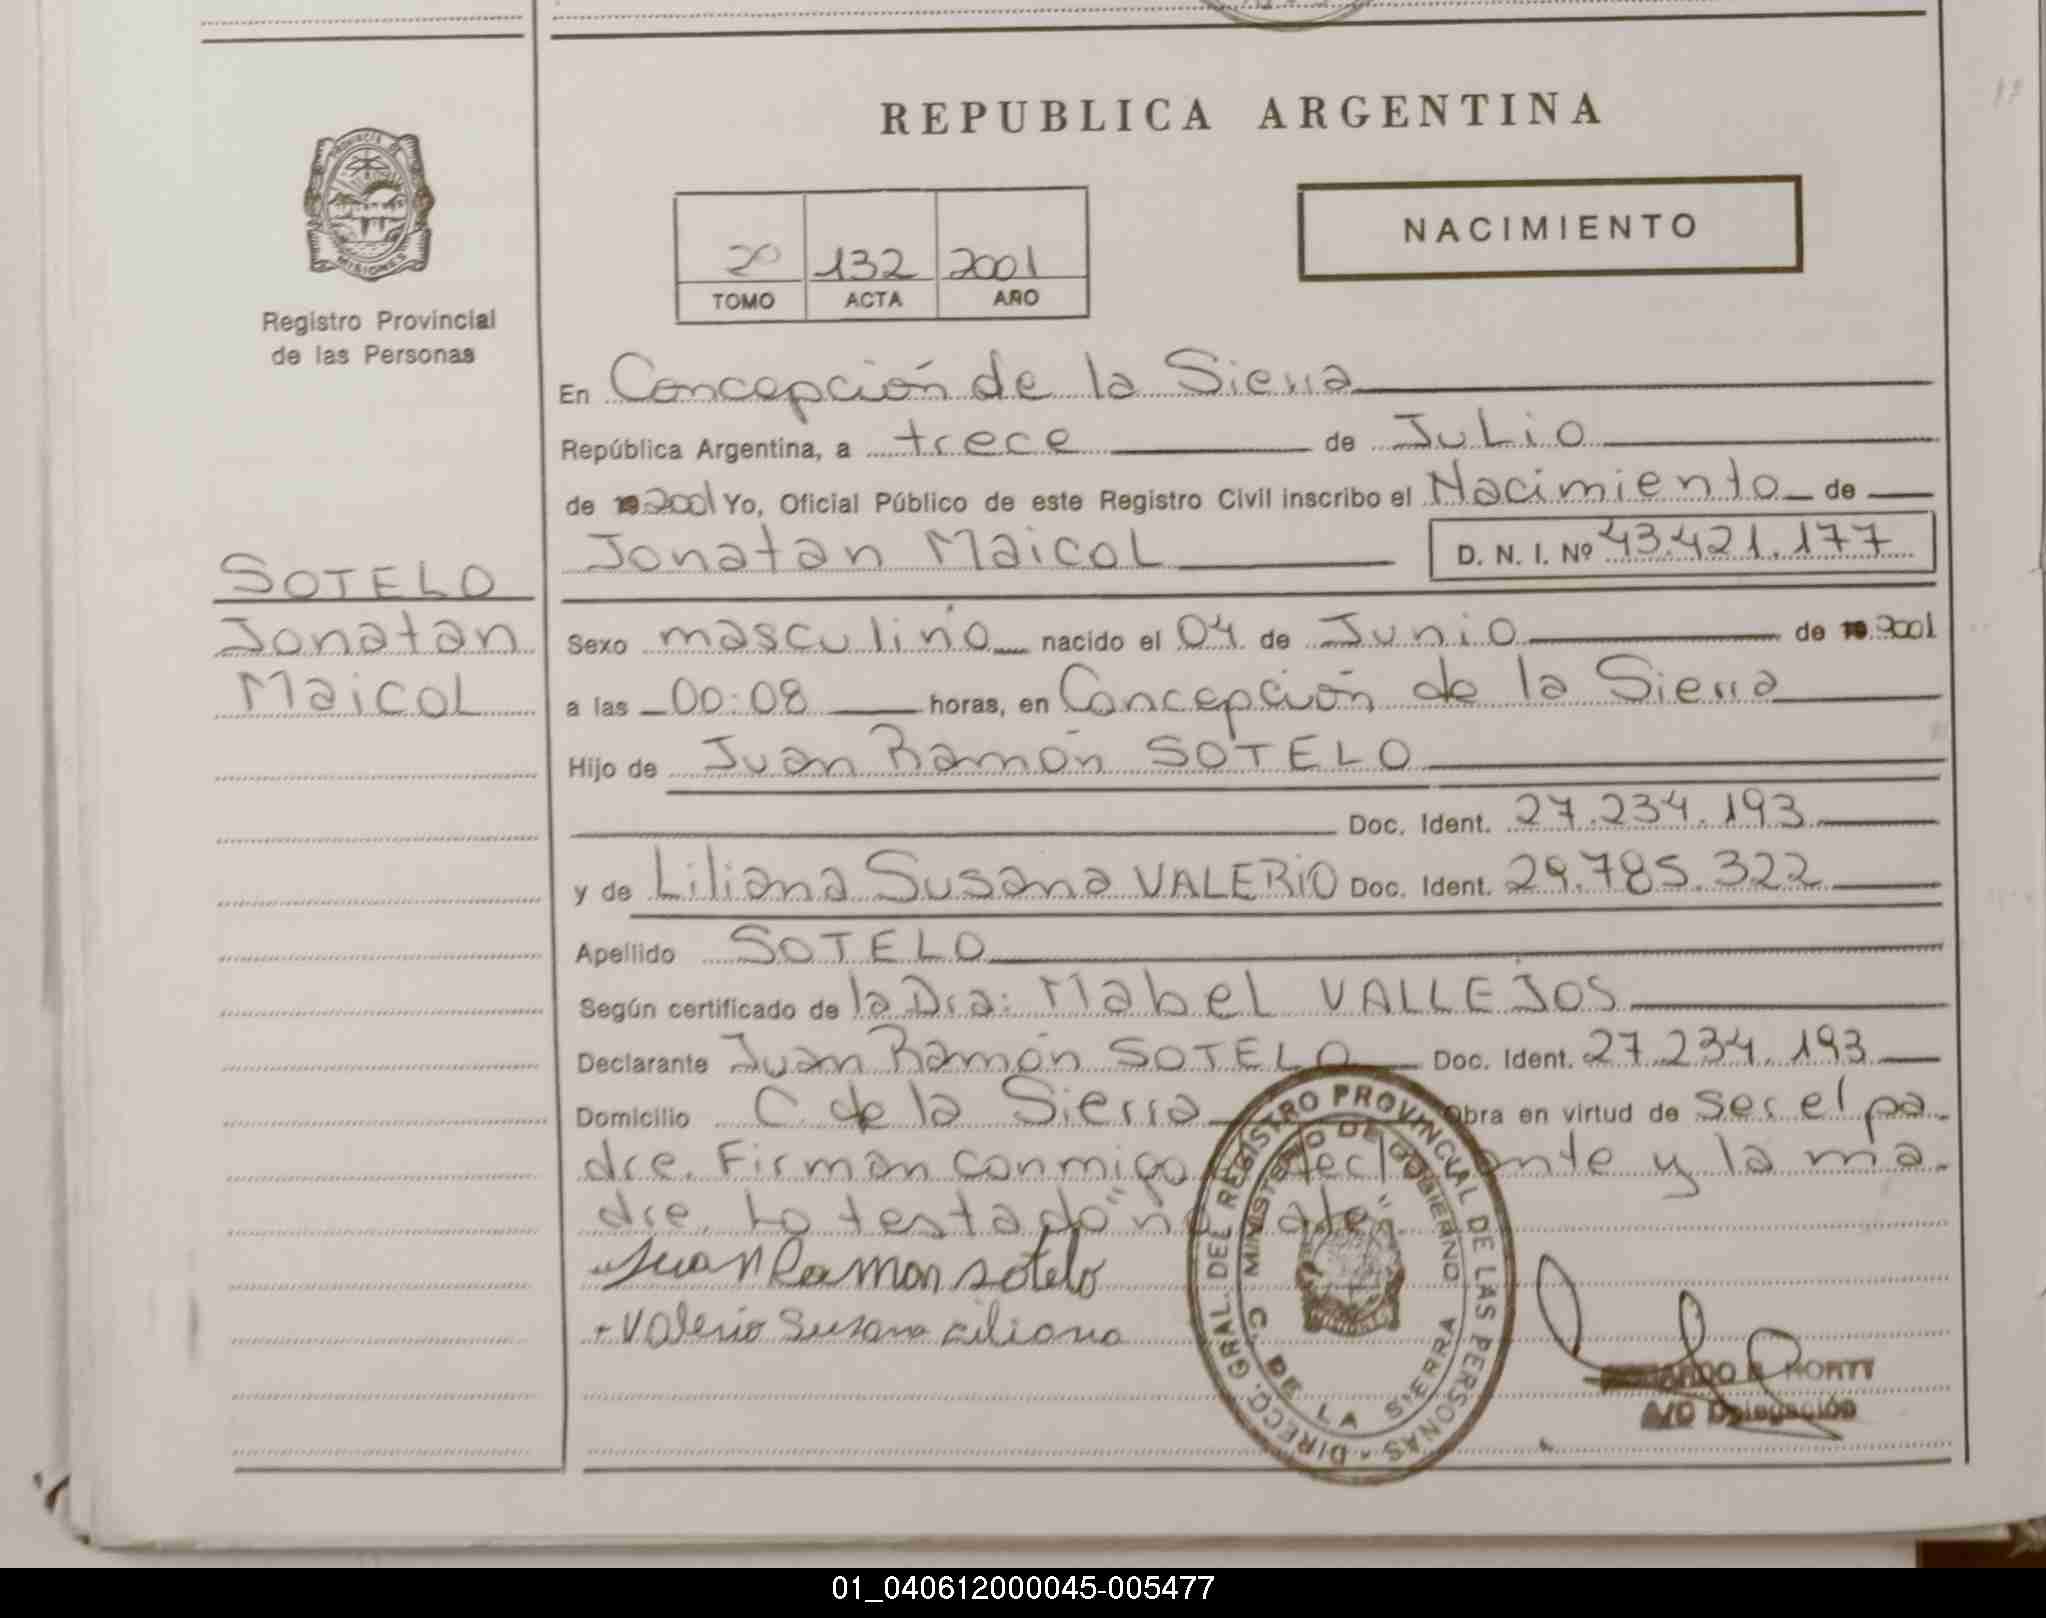 REPUBLICA ARGENTINA
PROVINCIA DE
MISIONES
Registro Provincial
de las Personas
20 132 2001
TOMO ACTA AÑO
NACIMIENTO
En Concepción de la Sierra
República Argentina, a trece de Julio
de 19 2001 Yo, Oficial Público de este Registro Civil inscribo el Nacimiento de
Jonatan Maicol D. N. I. Nº 43.421.177
SOTELO
Jonatan
Maicol
Sexo masculino nacido el 04 de Junio de 19 2001
a las 00:08 horas, en Concepción de la Sierra
Hijo de Juan Ramón SOTELO
Doc. Ident. 27.234.193
y de Liliana Susana VALERIO Doc. Ident. 29.785.322
Apellido SOTELO
Según certificado de la Dra: Mabel VALLEJOS
Declarante Juan Ramón SOTELO Doc. Ident. 27.234.193
Domicilio C. de la Sierra Obra en virtud de ser el pa-
dre. Firman conmigo declarante y la ma-
dre. Lo testado "no vale".
Juan Ramon sotelo
Valerio Susana Liliana
DIRECC. GRAL. DEL REGISTRO PROVINCIAL DE LAS PERSONAS
MINISTERIO DE GOBIERNO
C. DE LA SIERRA
A/C Delegación
01_040612000045-005477